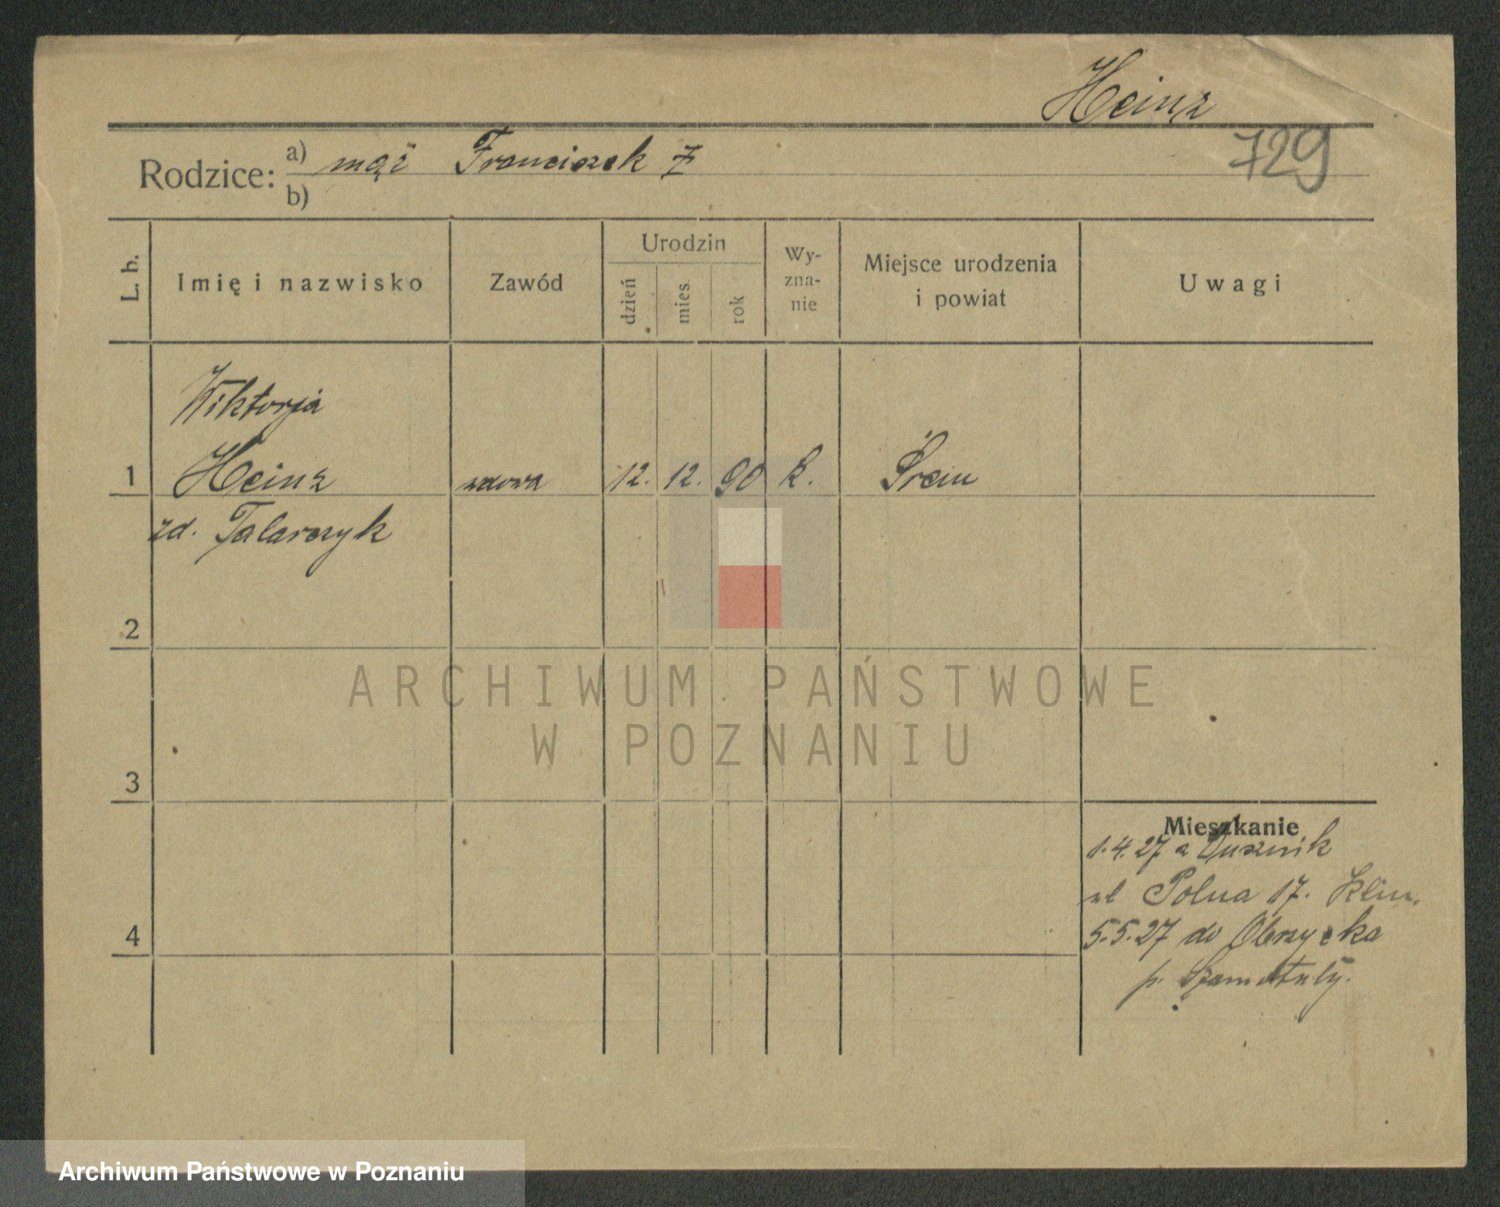 Heinz
729
Rodzice:
a) mąż Franciszek Z
b)
L. b.
Imię i nazwisko
Zawód
Urodzin
dzień
mies.
rok
Wy-
zna-
nie
Miejsce urodzenia
i powiat
Uwagi
Wiktorja
1 Heinz wdowa 12. 12. 90 k. Śrem
zd. Talarczyk
2
3
4
Mieszkanie
1.4.27 z Dusznik
ul Polna 17.
5.5.27 do Obrzycka
p. Szamotuły.
ARCHIWUM PAŃSTWOWE
W POZNANIU
Archiwum Państwowe w Poznaniu